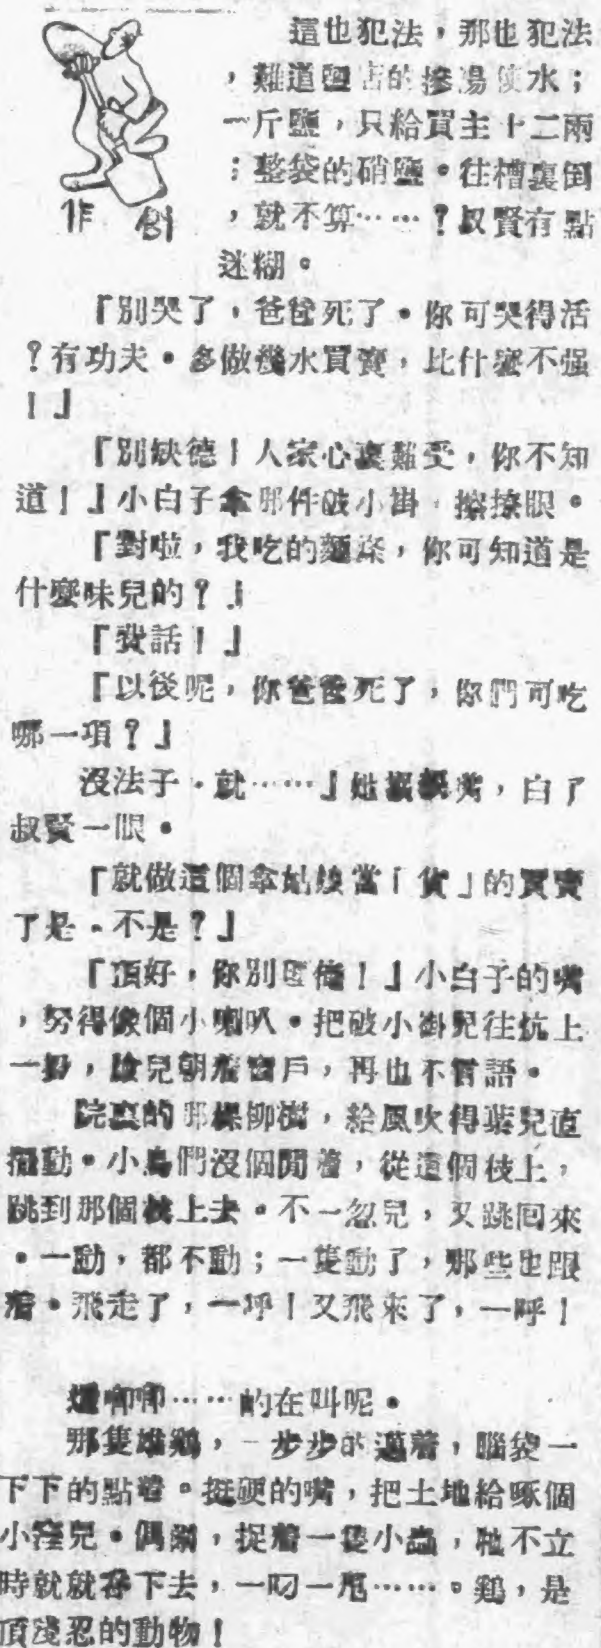 這也犯法，那也犯法
，難道鹽店的摻湯使水；
一斤鹽，只給買主十二兩
；整袋的硝鹽。往槽裏倒
，就不算……？叔賢有點
迷糊。
創作
『別哭了，爸爸死了。你可哭得活
？有功夫。多做幾水買賣，比什麼不强
！』
『別缺德！人家心裏難受，你不知
道！』小白子拿那件破小掛，擦擦眼。
『對啦，我吃的麵湯，你可知道是
什麼味兒的？』
『費話！』
『以後呢，你爸爸死了，你們可吃
哪一項？』
沒法子．就……』她撅撅嘴，白了
叔賢一眼。
『就做這個拿姑娘當「貨」的買賣
了是．不是？』
『頂好，你別 ！』小白子的嘴
，努得像個小喇叭。把破小掛兒往炕上
一扔，臉兒朝着窗戶，再也不言語。
院裏的那棵柳樹，給風吹得葉兒直
擺動。小鳥們沒個閒着，從這個枝上，
跳到那個枝上去。不一忽兒，又跳回來
。一動，都不動；一隻動了，那些也跟
着。飛走了，一呼！又飛來了，一呼！
還唧唧……的在叫呢。
那隻雄鷄，一步步的邁着，腦袋一
下下的點着。挺硬的嘴，把土地給啄個
小窪兒。偶爾，捉着一隻小蟲，牠不立
時就就吞下去，一叼一甩……。鷄，是
頂淺忍的動物！